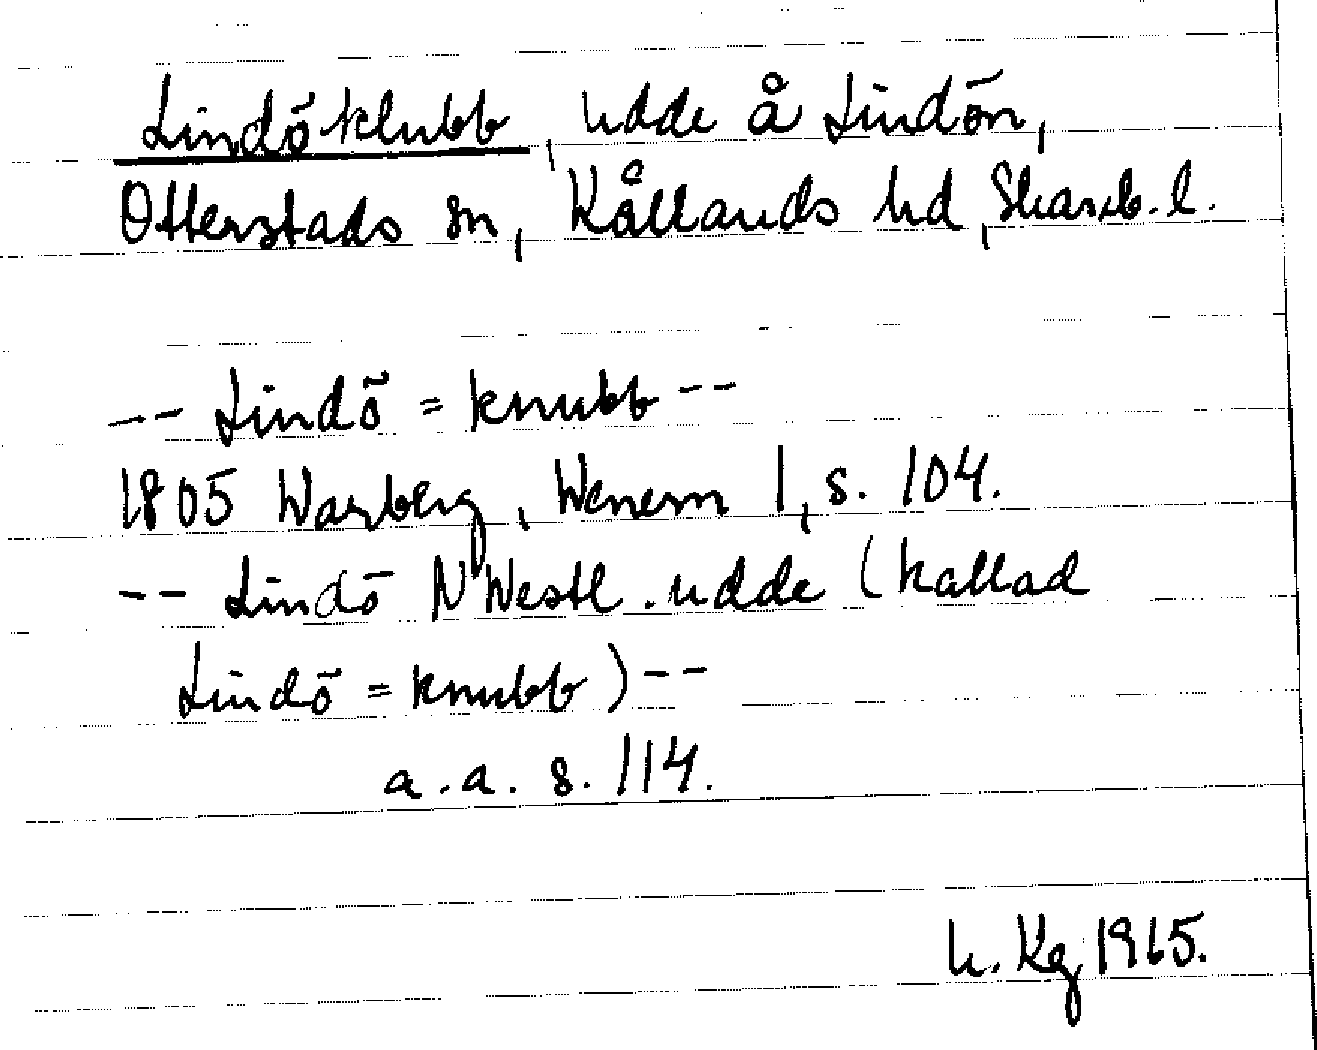 Lindöklubb, udde å Lindön,
Otterstads sn, Kållands hd, Skarab. l.
-- Lindö = knubb --
1805 Warberg, Wenern 1, s. 104.
-- Lindö NWestl. udde (kallad
Lindö = knubb) --
a. a. s. 114.
Kg 1965.